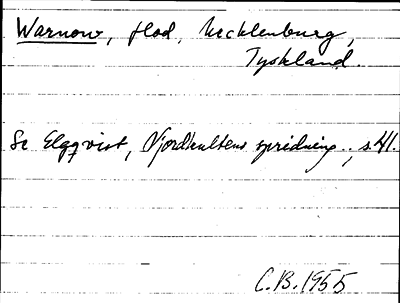 Warnow, flod, Mecklenburg,
Tyskland.
Se Elgqvist, Njordkultens spridning.., s 41.
C.B. 1955